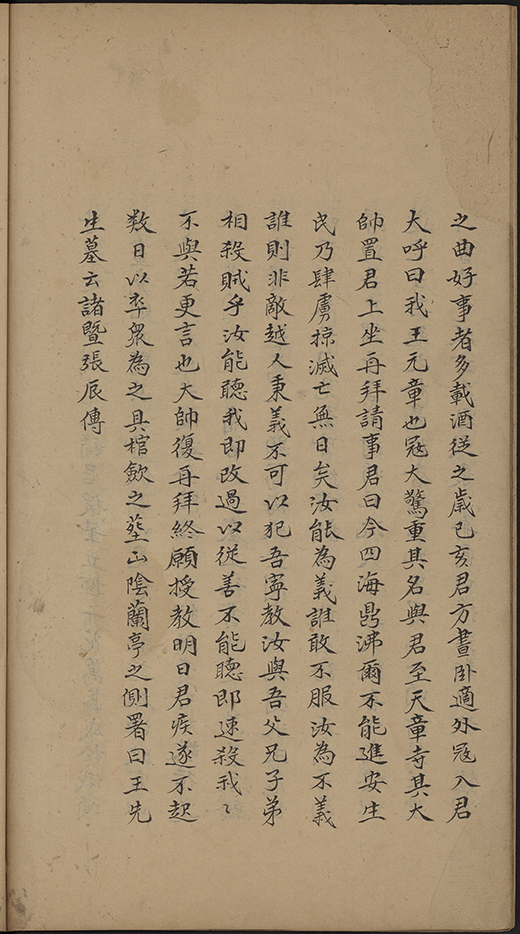 之曲好事者多載酒從之歲己亥君方晝卧適外冦入君
大呼曰我王元章也冦大驚重其名與君至天章寺其大
帥置君上坐再拜請事君曰今四海鼎沸爾不能進安生
民乃肆虜掠滅亡無日矣汝能為義誰敢不服汝為不義
誰則非敵越人秉義不可以犯吾寧教汝與吾父兄子弟
相殺賊乎汝能聽我即改過以從善不能聽即速殺我〻
不與若更言也大帥復再拜終願授教明日君疾遂不起
数日以卒衆為之具棺歛之塟山陰蘭亭之側署曰王先
生墓云諸暨張辰傳